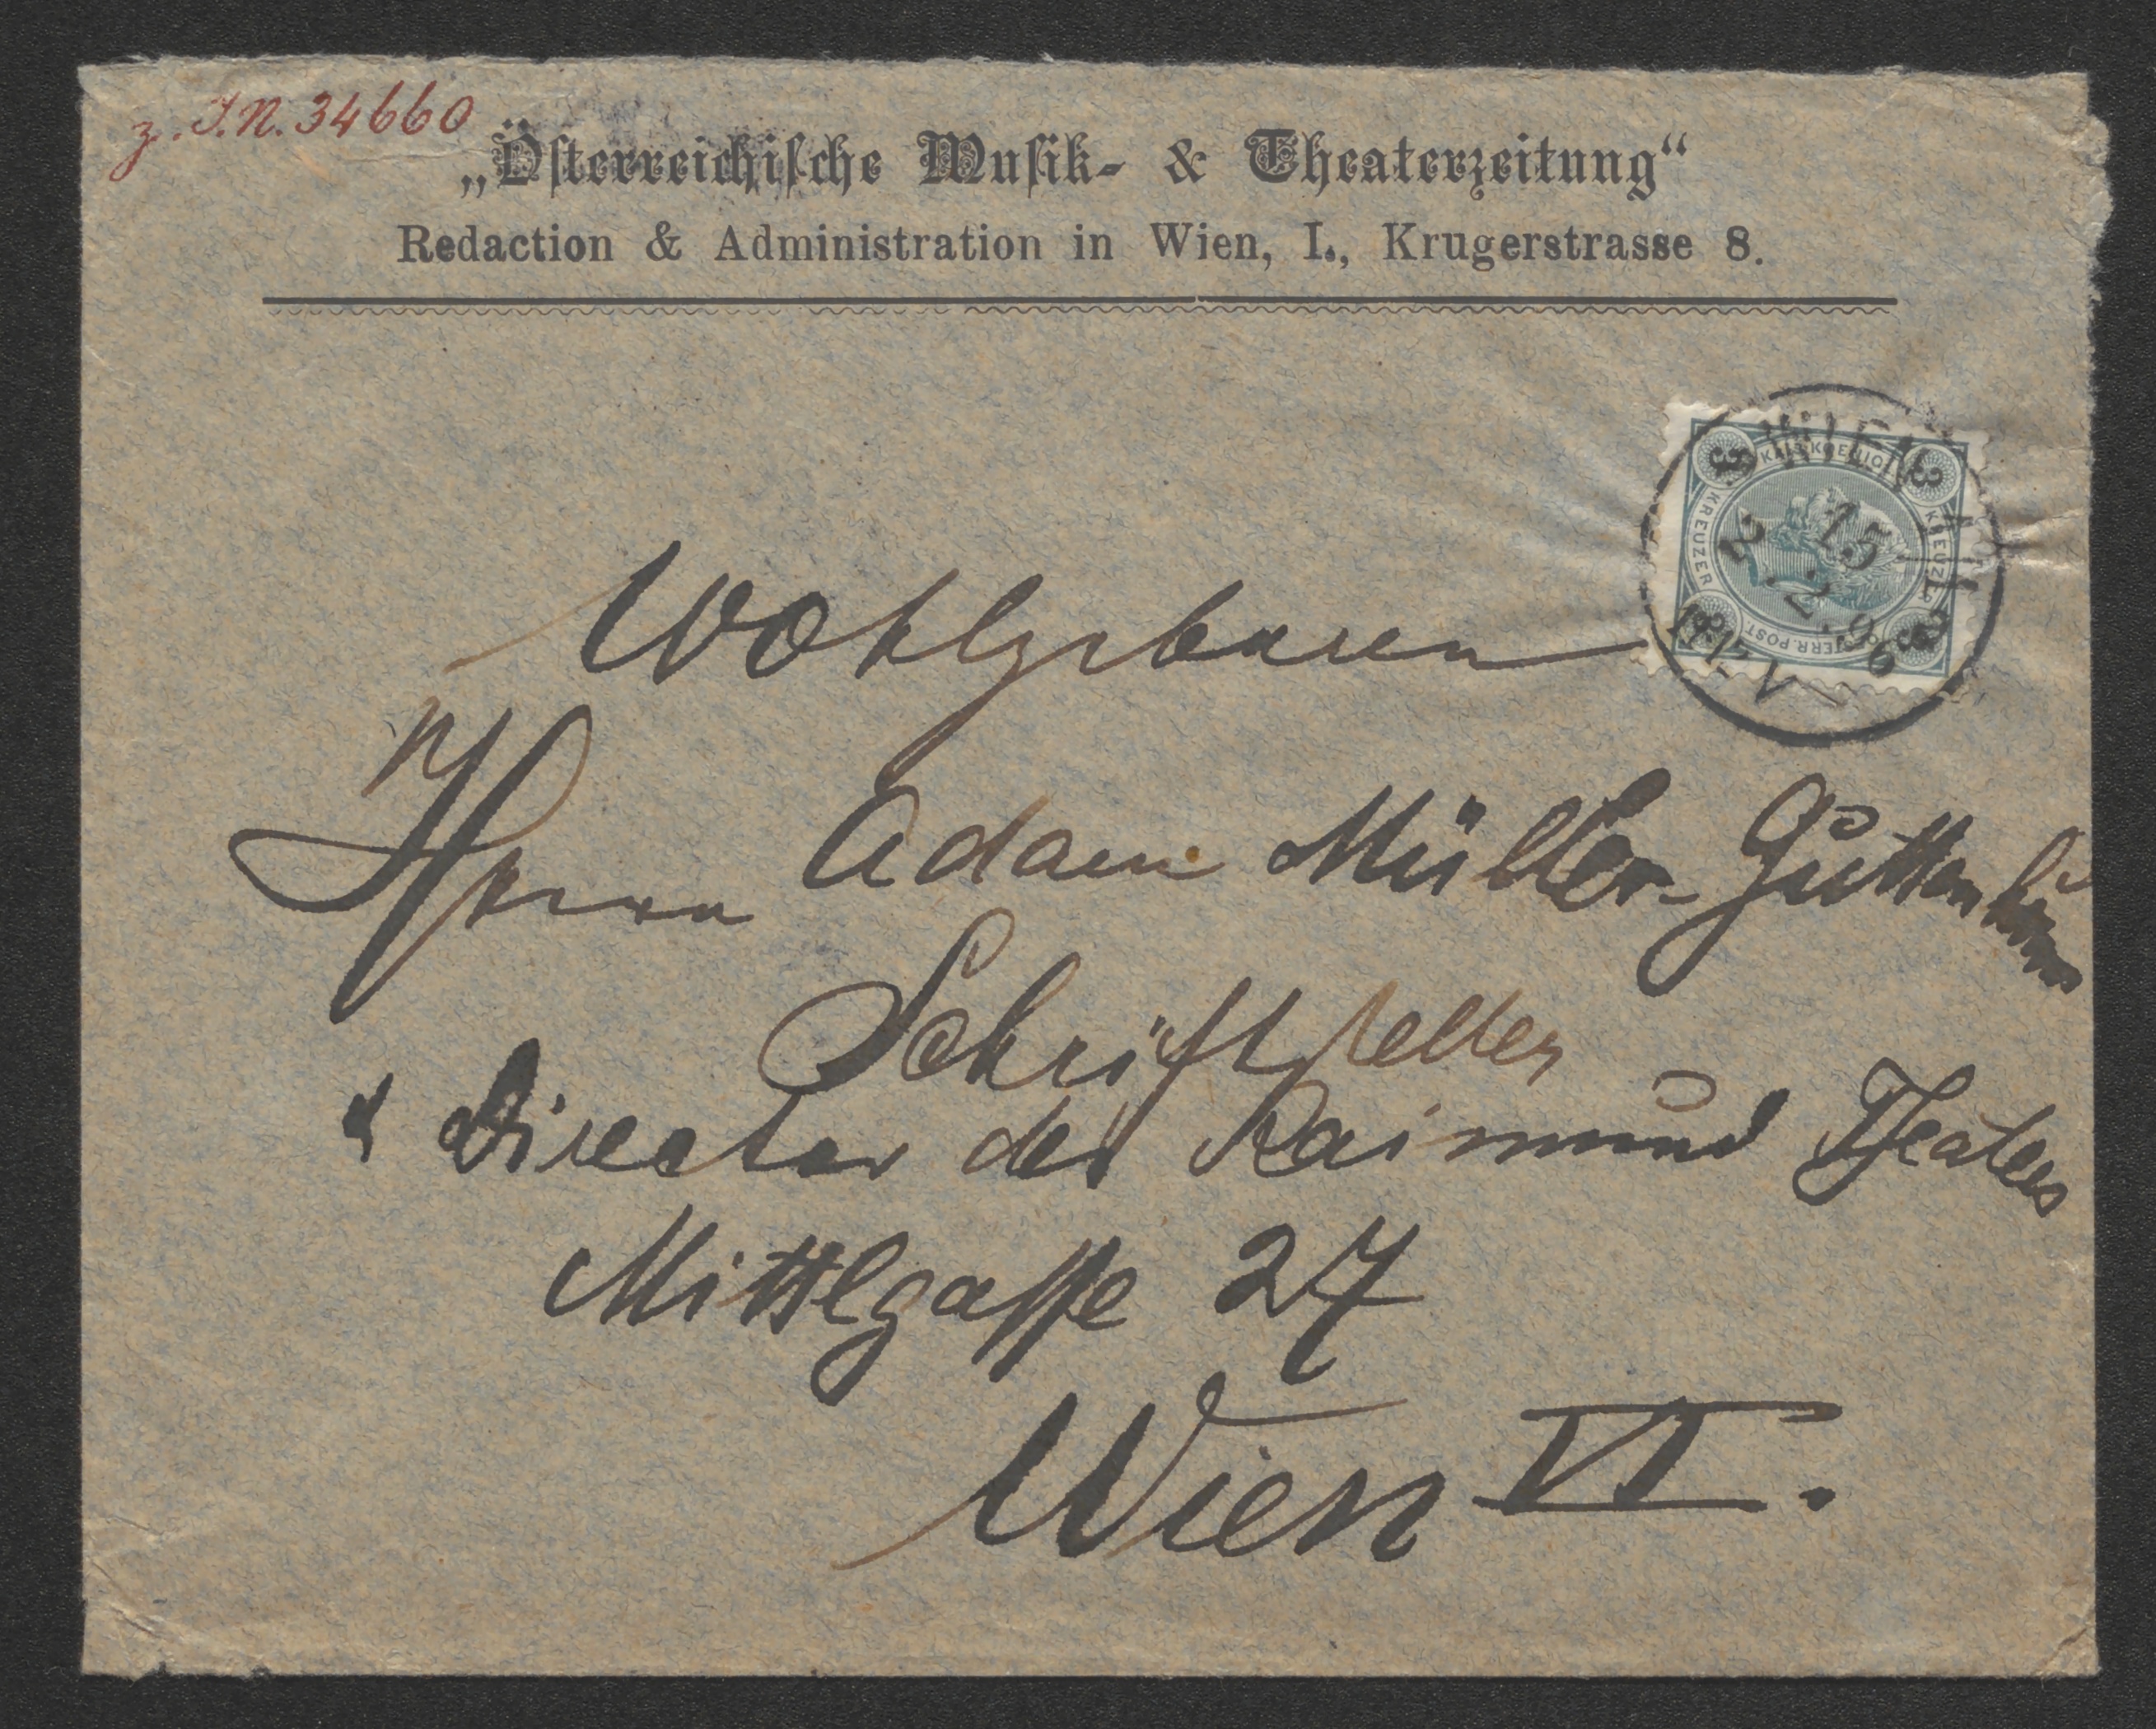 z. I.N. 34660
„Österreichische Musik- & Theaterzeitung“
Redaction & Administration in Wien, I., Krugerstrasse 8.
WIEN
15
2 . 2. 96
3 3
KREUZER KREUZER
3 3
Wohlgeboren
Herrn Adam Müller-Guttenbrunn
Schriftsteller
u Director des Raimund Theaters
Mittelgasse 27
Wien VI.